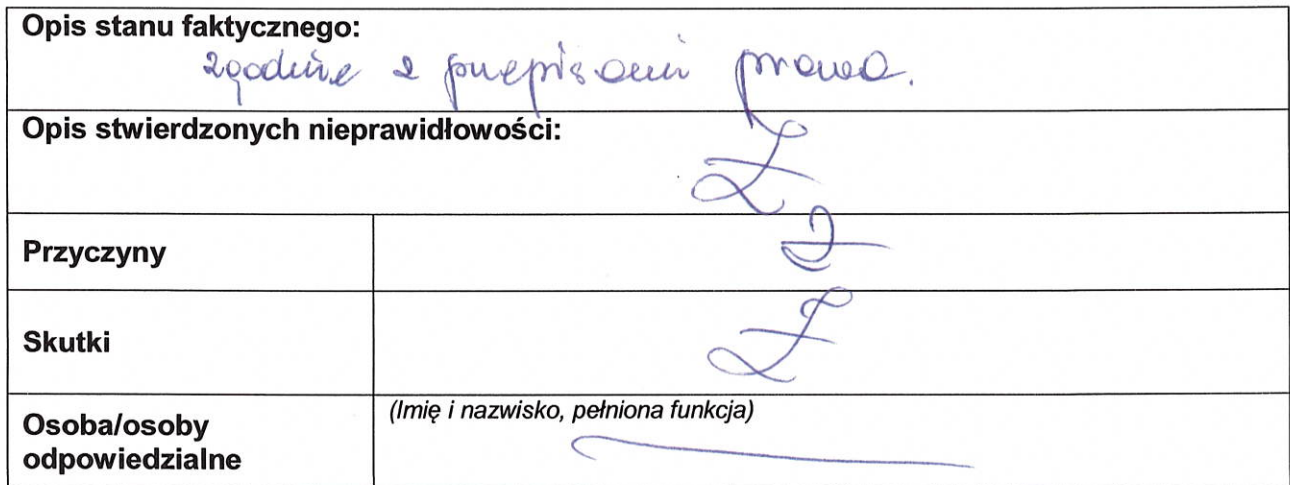 Opis stanu faktycznego:
zgodnie z przepisami prawa.
Opis stwierdzonych nieprawidłowości:
Przyczyny
Skutki
Osoba/osoby
odpowiedzialne
(Imię i nazwisko, pełniona funkcja)